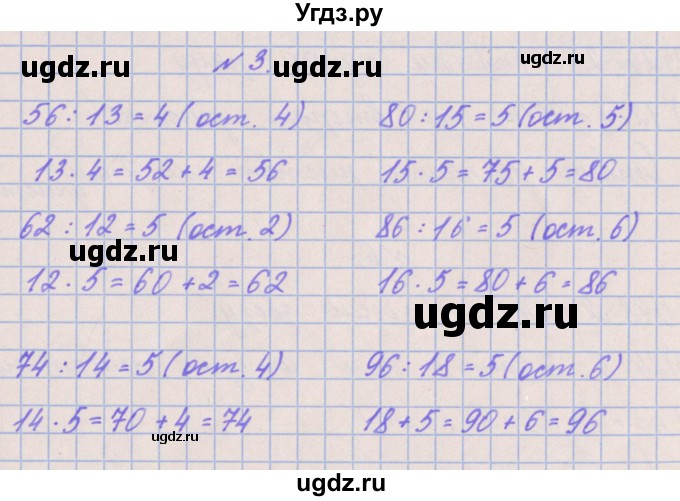 Угдз.ру
№ 3.
56 : 13 = 4 (ост. 4) 80 : 15 = 5 (ост. 5)
13 · 4 = 52 + 4 = 56 15 · 5 = 75 + 5 = 80
62 : 12 = 5 (ост. 2) 86 : 16 = 5 (ост. 6)
12 · 5 = 60 + 2 = 62 16 · 5 = 80 + 6 = 86
74 : 14 = 5 (ост. 4) 96 : 18 = 5 (ост. 6)
14 · 5 = 70 + 4 = 74 18 + 5 = 90 + 6 = 96
ugdz.ru
ugdz.ru
ugdz.ru
ugdz.ru
ugdz.ru
ugdz.ru
ugdz.ru
ugdz.ru